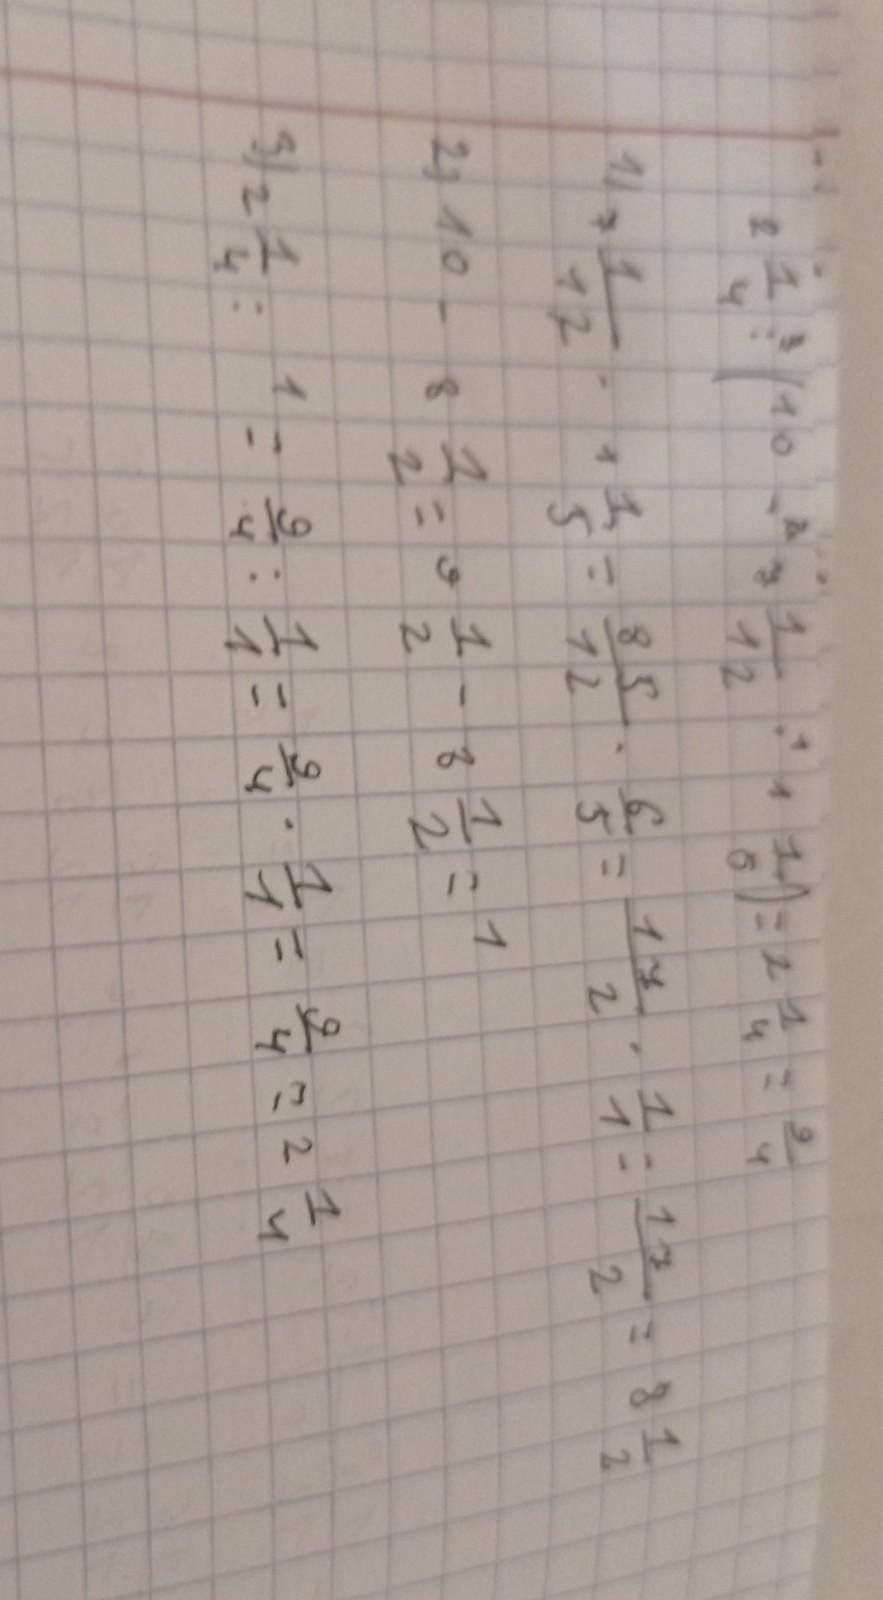 2 1/4 : (10 - 7 1/12 · 1 1/5) = 2 1/4 = 9/4
1) 7 1/12 · 1 1/5 = 85/12 · 6/5 = 17/2 · 1/1 = 17/2 = 8 1/2
2) 10 - 8 1/2 = 9 1/2 - 8 1/2 = 1
3) 2 1/4 : 1 = 9/4 : 1/1 = 9/4 · 1/1 = 9/4 = 2 1/4